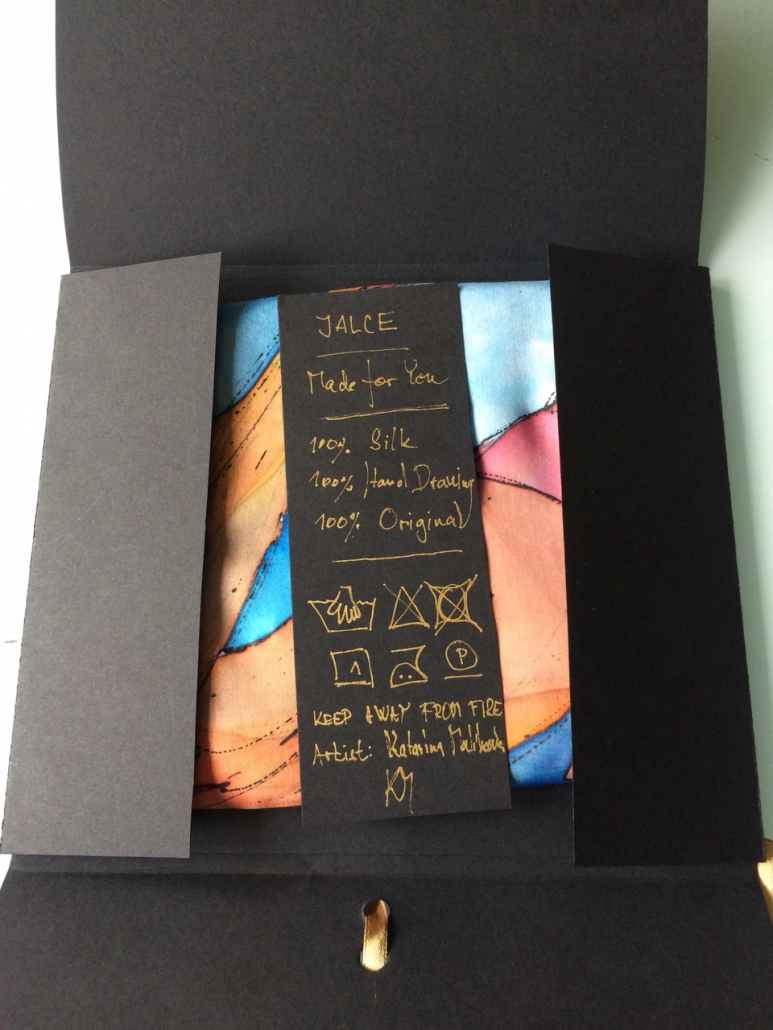 JALCE
Made for You
100% Silk
100% Hand Drawing
100% Original
1
P
KEEP AWAY FROM FIRE
Artist: Katarina
KM